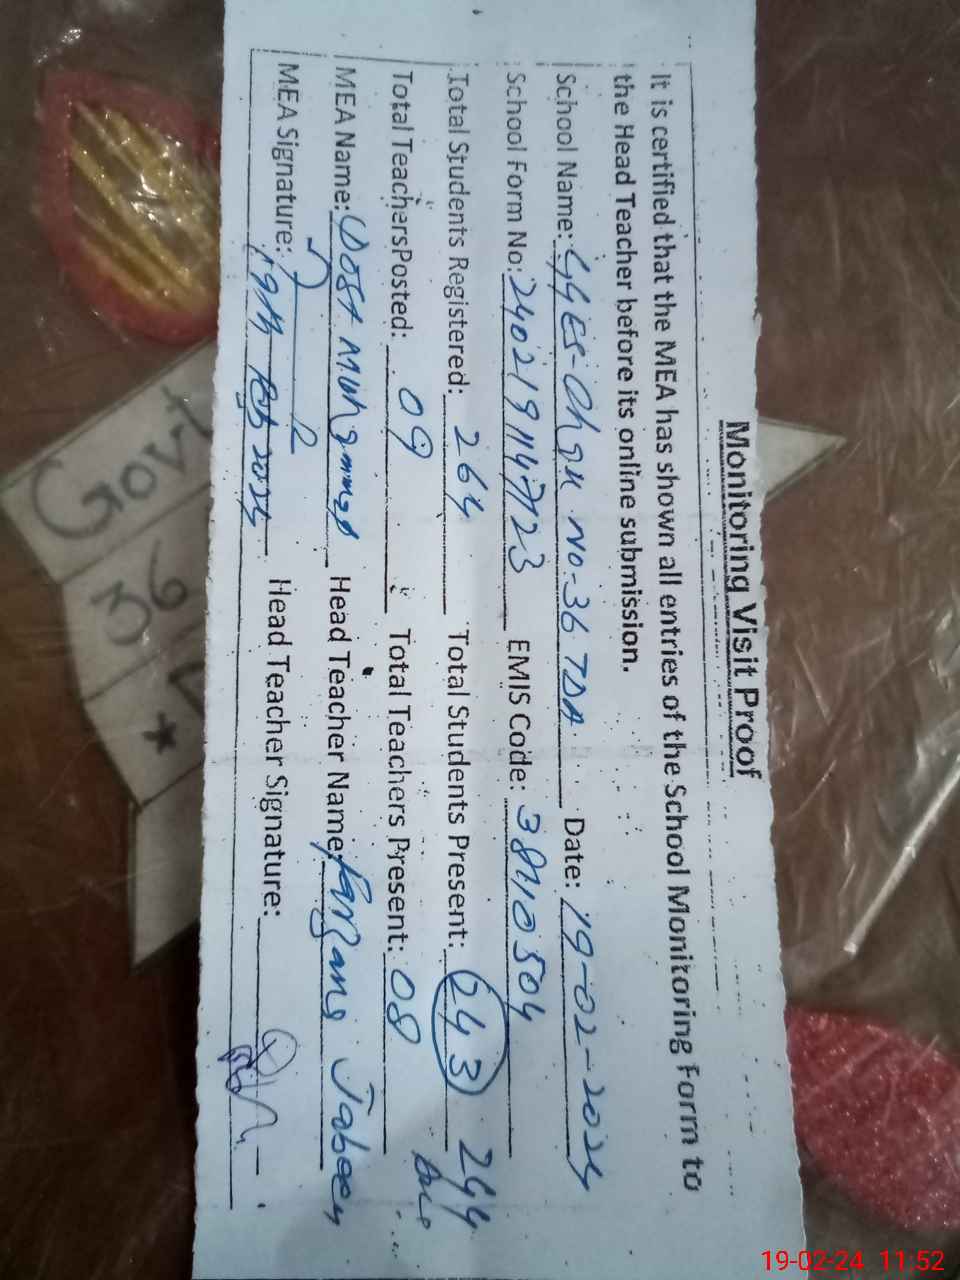 Monitoring Visit Proof
It is certified that the MEA has shown all entries of the School Monitoring Form to
the Head Teacher before its online submission.
School Name: GGES-Chak No.36 TDA Date: 19-02-2024
School Form No: EMIS Code: 38110504
Total Students Registered: 264 Total Students Present: 243 244
Total TeachersPosted: 09 Total Teachers Present: 08
MEA Name: Dost Muhammad Head Teacher Name: Farzana Jabeen
MEA Signature: Head Teacher Signature:
19th Feb 2024
Govt
36
19-02-24 11:52